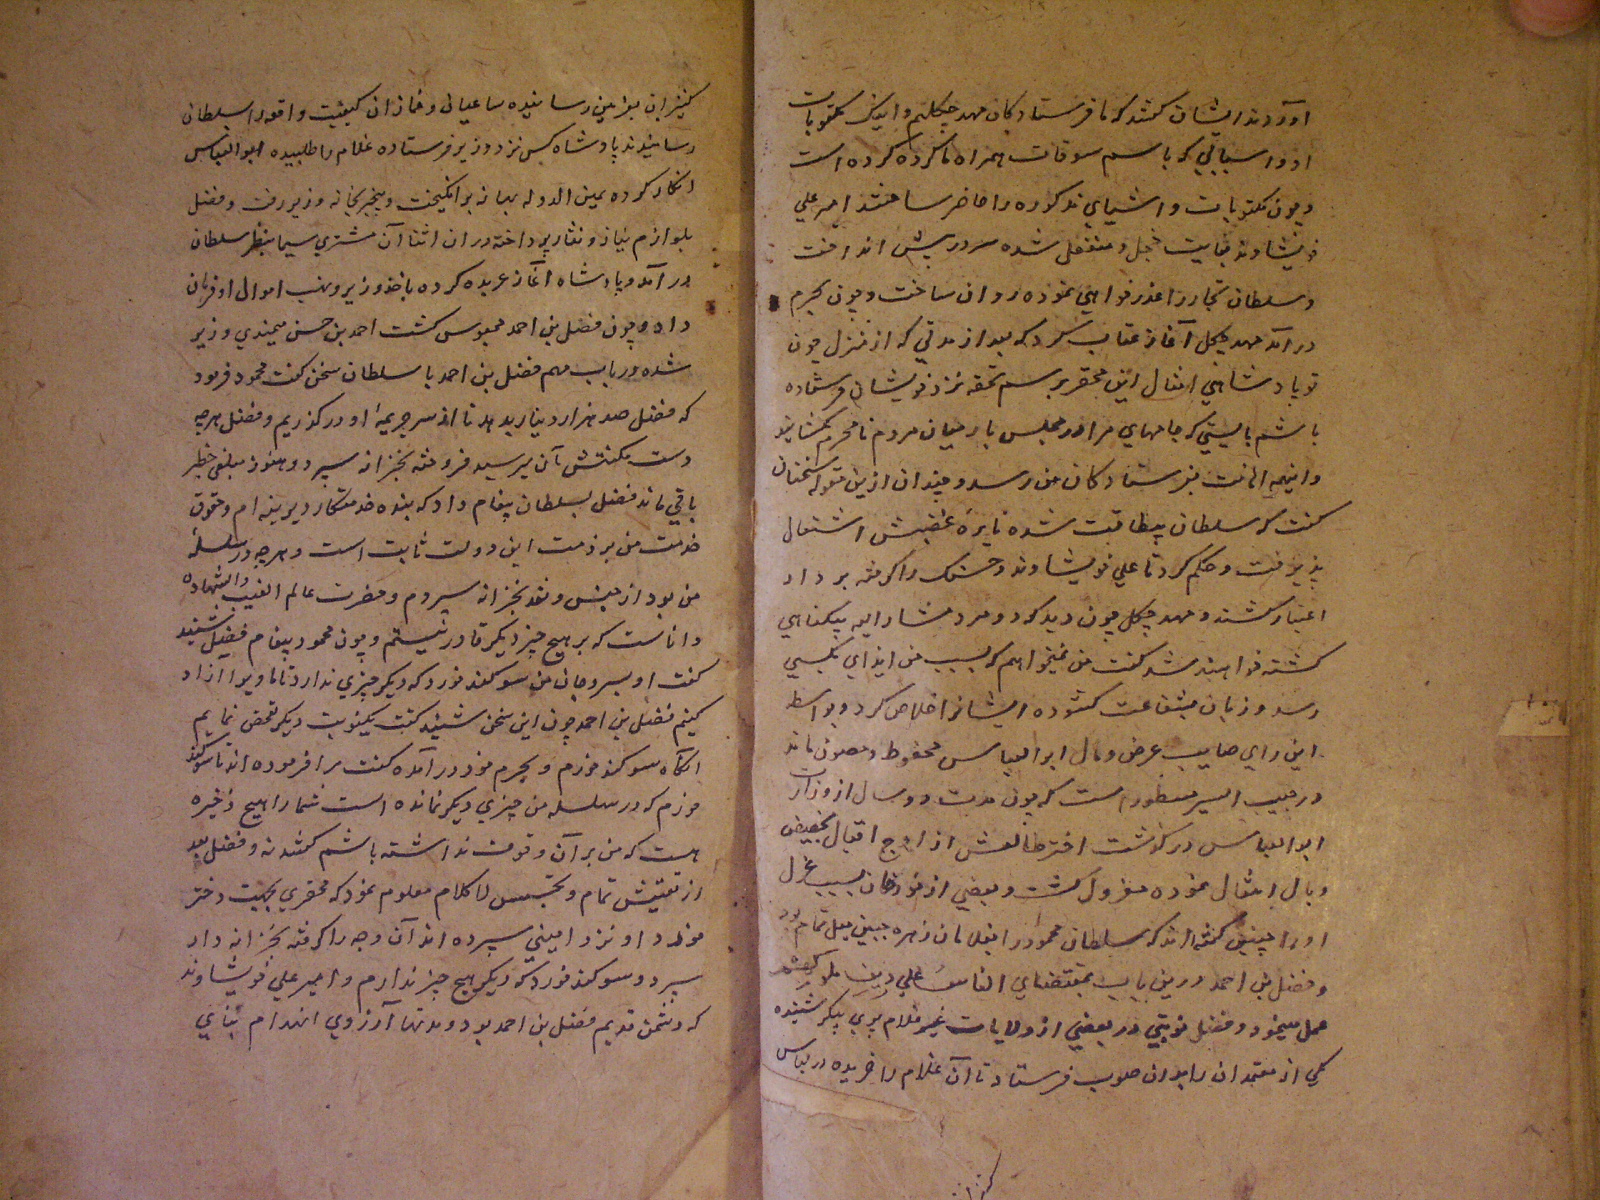 آوردند ایشان گفتند که ما فرستادگان مهد چگلیم و اینک مکتوبات
او و اسبابی که باسم سوقات همراه ما کرده است
و چون مکتوبات و اشیای مذکوره را حاضر ساختند امیر علی
خویشاوند بغایت خجل و منفعل شده سر در پیش انداخت
و سلطان تجار را عذرخواهی نموده روان ساخت و چون بحرم
در آمد مهد چگل آغاز عتاب کرد که بعد از مدتی که از منزل چون
تو پادشاهی امثال این محقر برسم تحفه نزد خویشان فرستاده
باشم بایستی که جامهای مرا در مجلس بار میان مردم نامحرم بگشایند
و اینهمه اهانت بفرستادگان من رسد و چندان ازین مقوله سخنان
گفت که سلطان بیطاقت شده نایره غضبش اشتعال
پذیرفت و حکم کرد تا علی خویشاوند و حسنک را گرفته بر دار
اعتبار کشند و مهد چگل چون دید که دو مرد مشار الیه بیگناهی
کشته خواهند شد گفت من نمیخواهم که بسبب من ایذای بکسی
رسد و زبان بشفاعت گشوده ایشانرا خلاص کرد و بواسطه
این رای صایب عرض و مال ابو العباس محفوظ و مصون ماند
در حبیب السیر مسطور است که چون مدت دو سال از وزارت
ابو العباس در گذشت اختر طالعش از اوج اقبال بحضیض
وبال انتقال نموده معزول گشت و بعضی از مورخان بسبب عزل
او را چنین گفته اند که سلطان محمود را بغلامان زهره جبین میل تمام بود
و فضل بن احمد درین باب بمقتضای الناس علی دین ملوکهم
عمل مینمود و فضل نوبتی در بعضی از ولایات خبر غلام پری پیکر شنیده
یکی از معتمدان را بدان صوب فرستاد تا آن غلام را خریده در لباس
کنیزان
کنیزان بغزنین رسانیده ساعیانی و غمازان کیفیت واقعه را بسلطان
رسانیدند پادشاه کس نزد وزیر فرستاده غلام را طلبیده ابو العباس
انکار کرده یمین الدوله بهانه برانگیخت و بیخبر بخانه وزیر رفت و فضل
بلوازم نیاز و نثار پرداخته در ان اثنا آن مشتری سیما بنظر سلطان
در آمد و پادشاه آغاز عربده کرده باخذ وزیر و نهب اموال او فرمان
داد و چون فضل بن احمد محبوس گشت احمد بن حسن میمندی وزیر
شده در باب مهم فضل بن احمد با سلطان سخن گفت محمود فرمود
که فضل صد هزار دینار بدهد تا از سر جریمه او در گذریم و فضل هرچه
دست مکنتش بآن میرسید فروخته بخزانه سپرد و هنوز مبلغی خطیر
باقی ماند فضل بسلطان پیغام داد که بنده خدمتکار دیرینه ام و حقوق
خدمت من بر ذمت این دولت ثابت است و هرچه در سلسله
من بود از جنس و نقد بخزانه سپردم و حضرت عالم الغیب والشهاده
داناست که بر هیچ چیز دیگر قادر نیستم و چون محمود پیغام فضل شنید
گفت او بسر و جان من سوگند خورد که دیگر چیزی ندارد تا ما او را آزاد
کنیم فضل بن احمد چون این سخن شنید گفت یکنوبت دیگر تفحص نمایم
آنگاه سوگند خورم و بحرم خود در آمده گفت مرا فرموده اند تا سوگند
خورم که در سلسله من چیزی دیگر نمانده است شما را هیچ ذخیره
هست که من بر آن وقوف نداشته باشم گفتند نه و فضل بعد
از تفتیش تمام و تجسس لا کلام معلوم نمود که محقری بجهت دختر
خورد او نزد امینی سپرده اند آن وجه را گرفته بخزانه دار
سپرد و سوگند خورد که دیگر هیچ چیز ندارم و امیر علی خویشاوند
که دشمن قدیم فضل بن احمد بود و مدتها آرزوی انهدام بنای